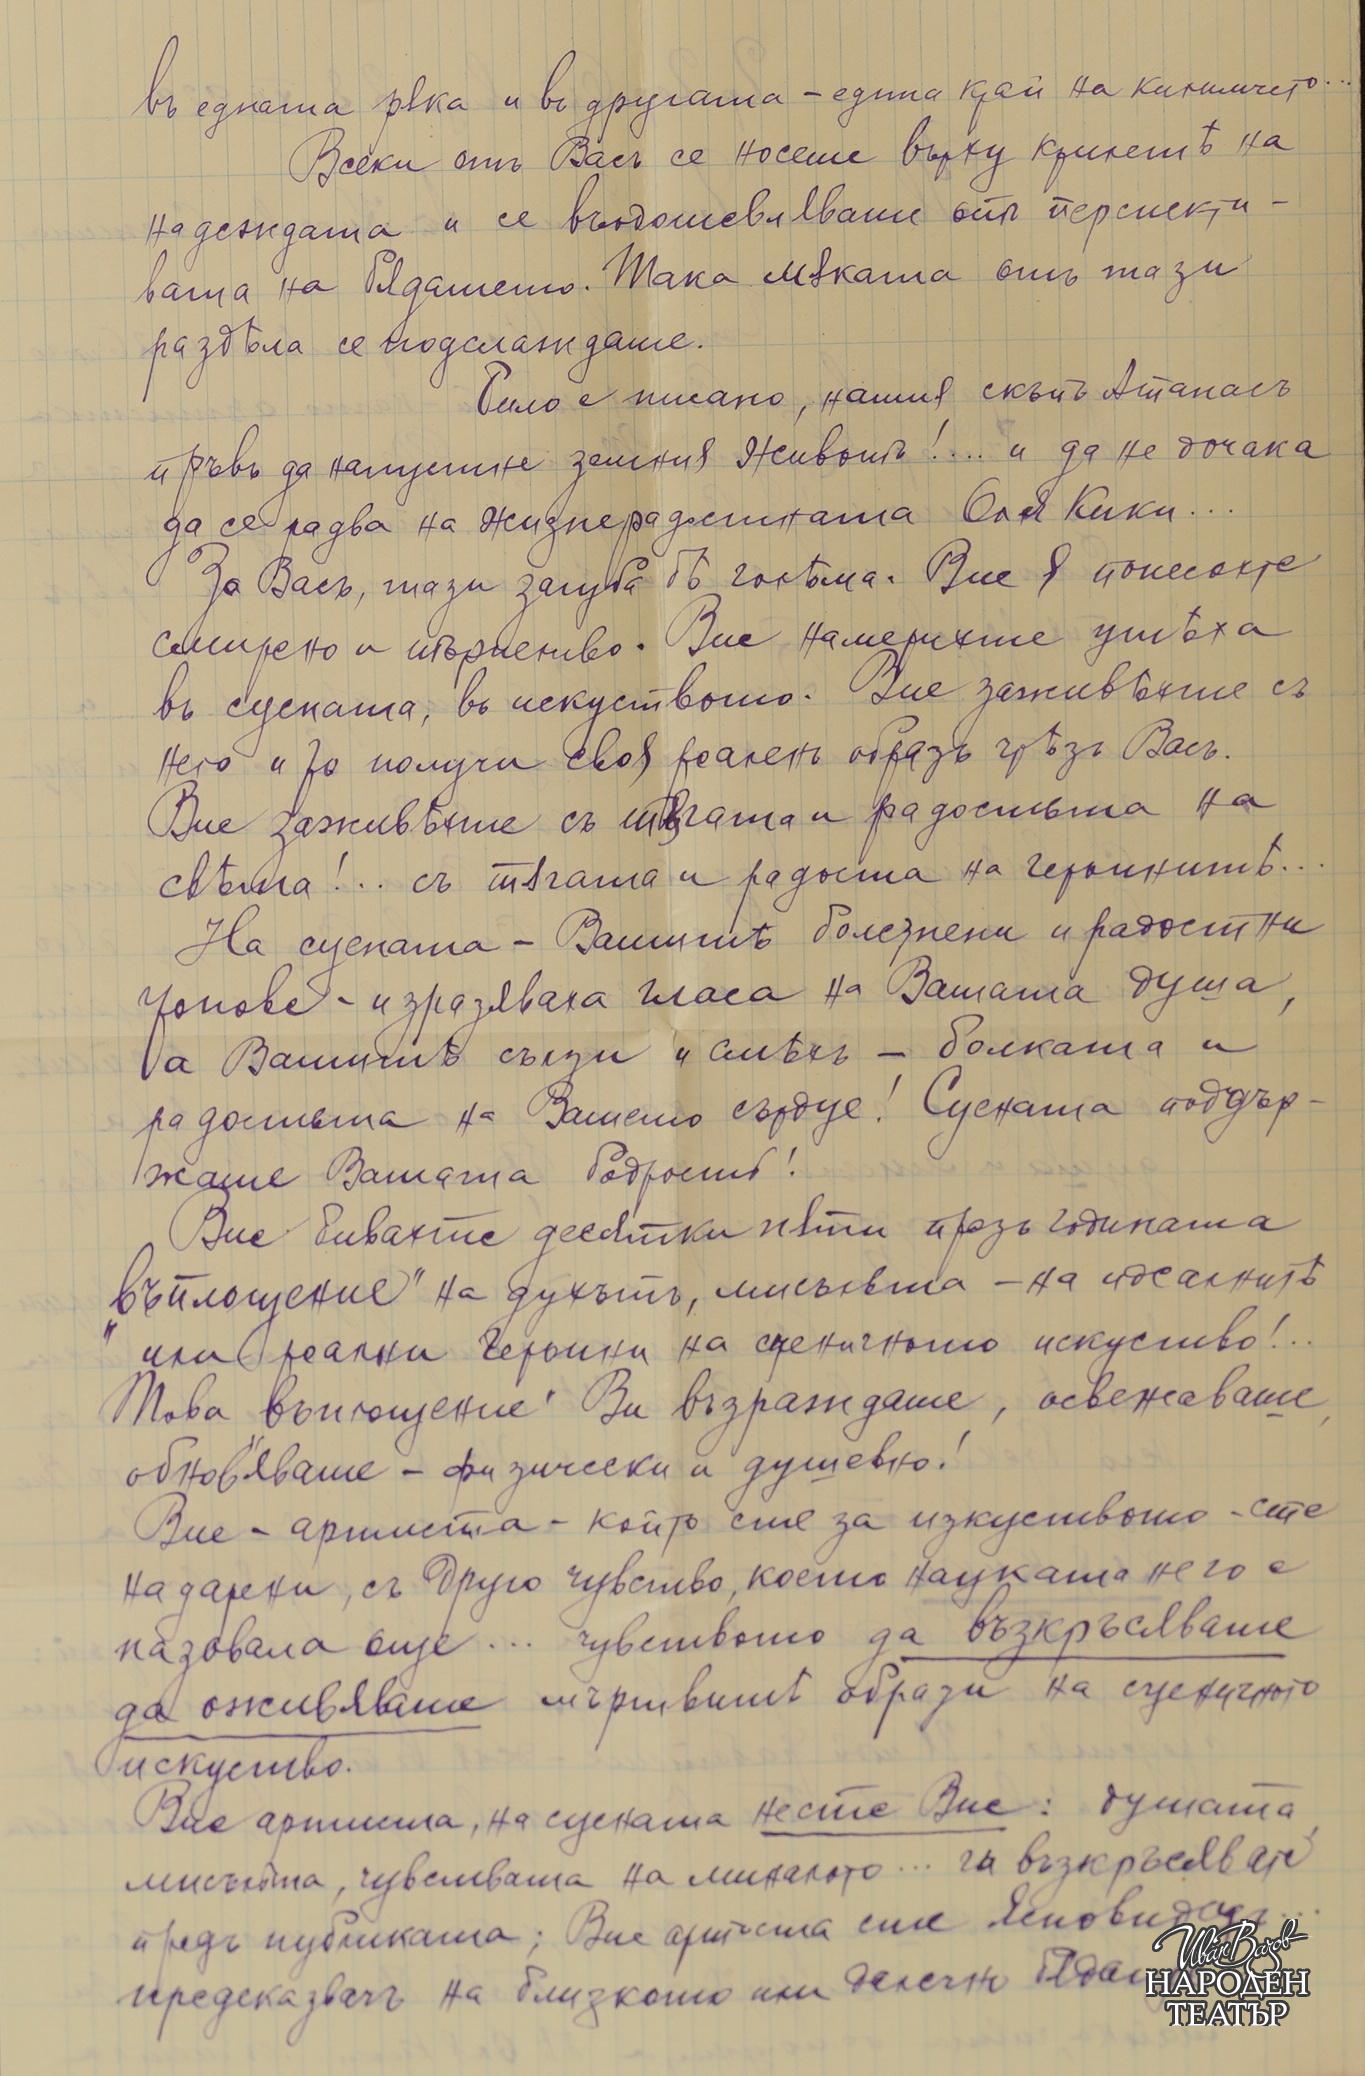 въ едната рѫка и въ другата – едина край на килимчето...
Всеки отъ Васъ се носеше върху крилетѣ на
надеждата и се въодошевляваше отъ перспекти-
вата на бѫдащето. Така мѫката отъ тази
раздѣла се подслаждаше.
Било е писано, нашия скъпъ Атанасъ
пръвъ да напустне земния животъ!... и да не дочака
да се радва на жизнерадостната Оля Кики...
За Васъ, тази загуба бѣ голѣма. Вие я понесохте
смирено и търпеливо. Вие намерихте утѣха
въ сцената, въ искуството. Вие заживѣхте съ
него и то получи своя реаленъ образъ чрѣзъ Васъ.
Вие заживѣхте съ тѫгата и радостьта на
свѣта!.. съ тѫгата и радоста на героинитѣ...
На сцената – Вашитѣ болезнени и радостни
тонове – изразяваха гласа на Вашата душа,
а Вашитѣ сълзи и смѣхъ – болката и
радостьта на Вашето сърдце! Сцената поддър-
жаше Вашата бодрость!
Вие бивахте десятки пѫти презъ годината
"въплощение" на духътъ, мисъльта – на идеалнитѣ
или реални героини на сценичното искуство!..
Това "въплощение" Ви възраждаше, освежаваше,
обновяваше – физически и душевно!
Вие – артиста – който сте за изкуството – сте
надарени, съ друго чувство, което науката не го е
назовала още ... чувството да възкръсяваше
да оживяваше мъртвитѣ образи на сценичното
искуство.
Вие артиста, на сцената несте Вие: душата,
мисъльта, чувствата на миналото ... ги възкръсявате
предъ публиката; Вие артиста сте ясновидецъ...
предсказвачъ на близкото или далечно
Иван Вазов
НАРОДЕН
ТЕАТЪР